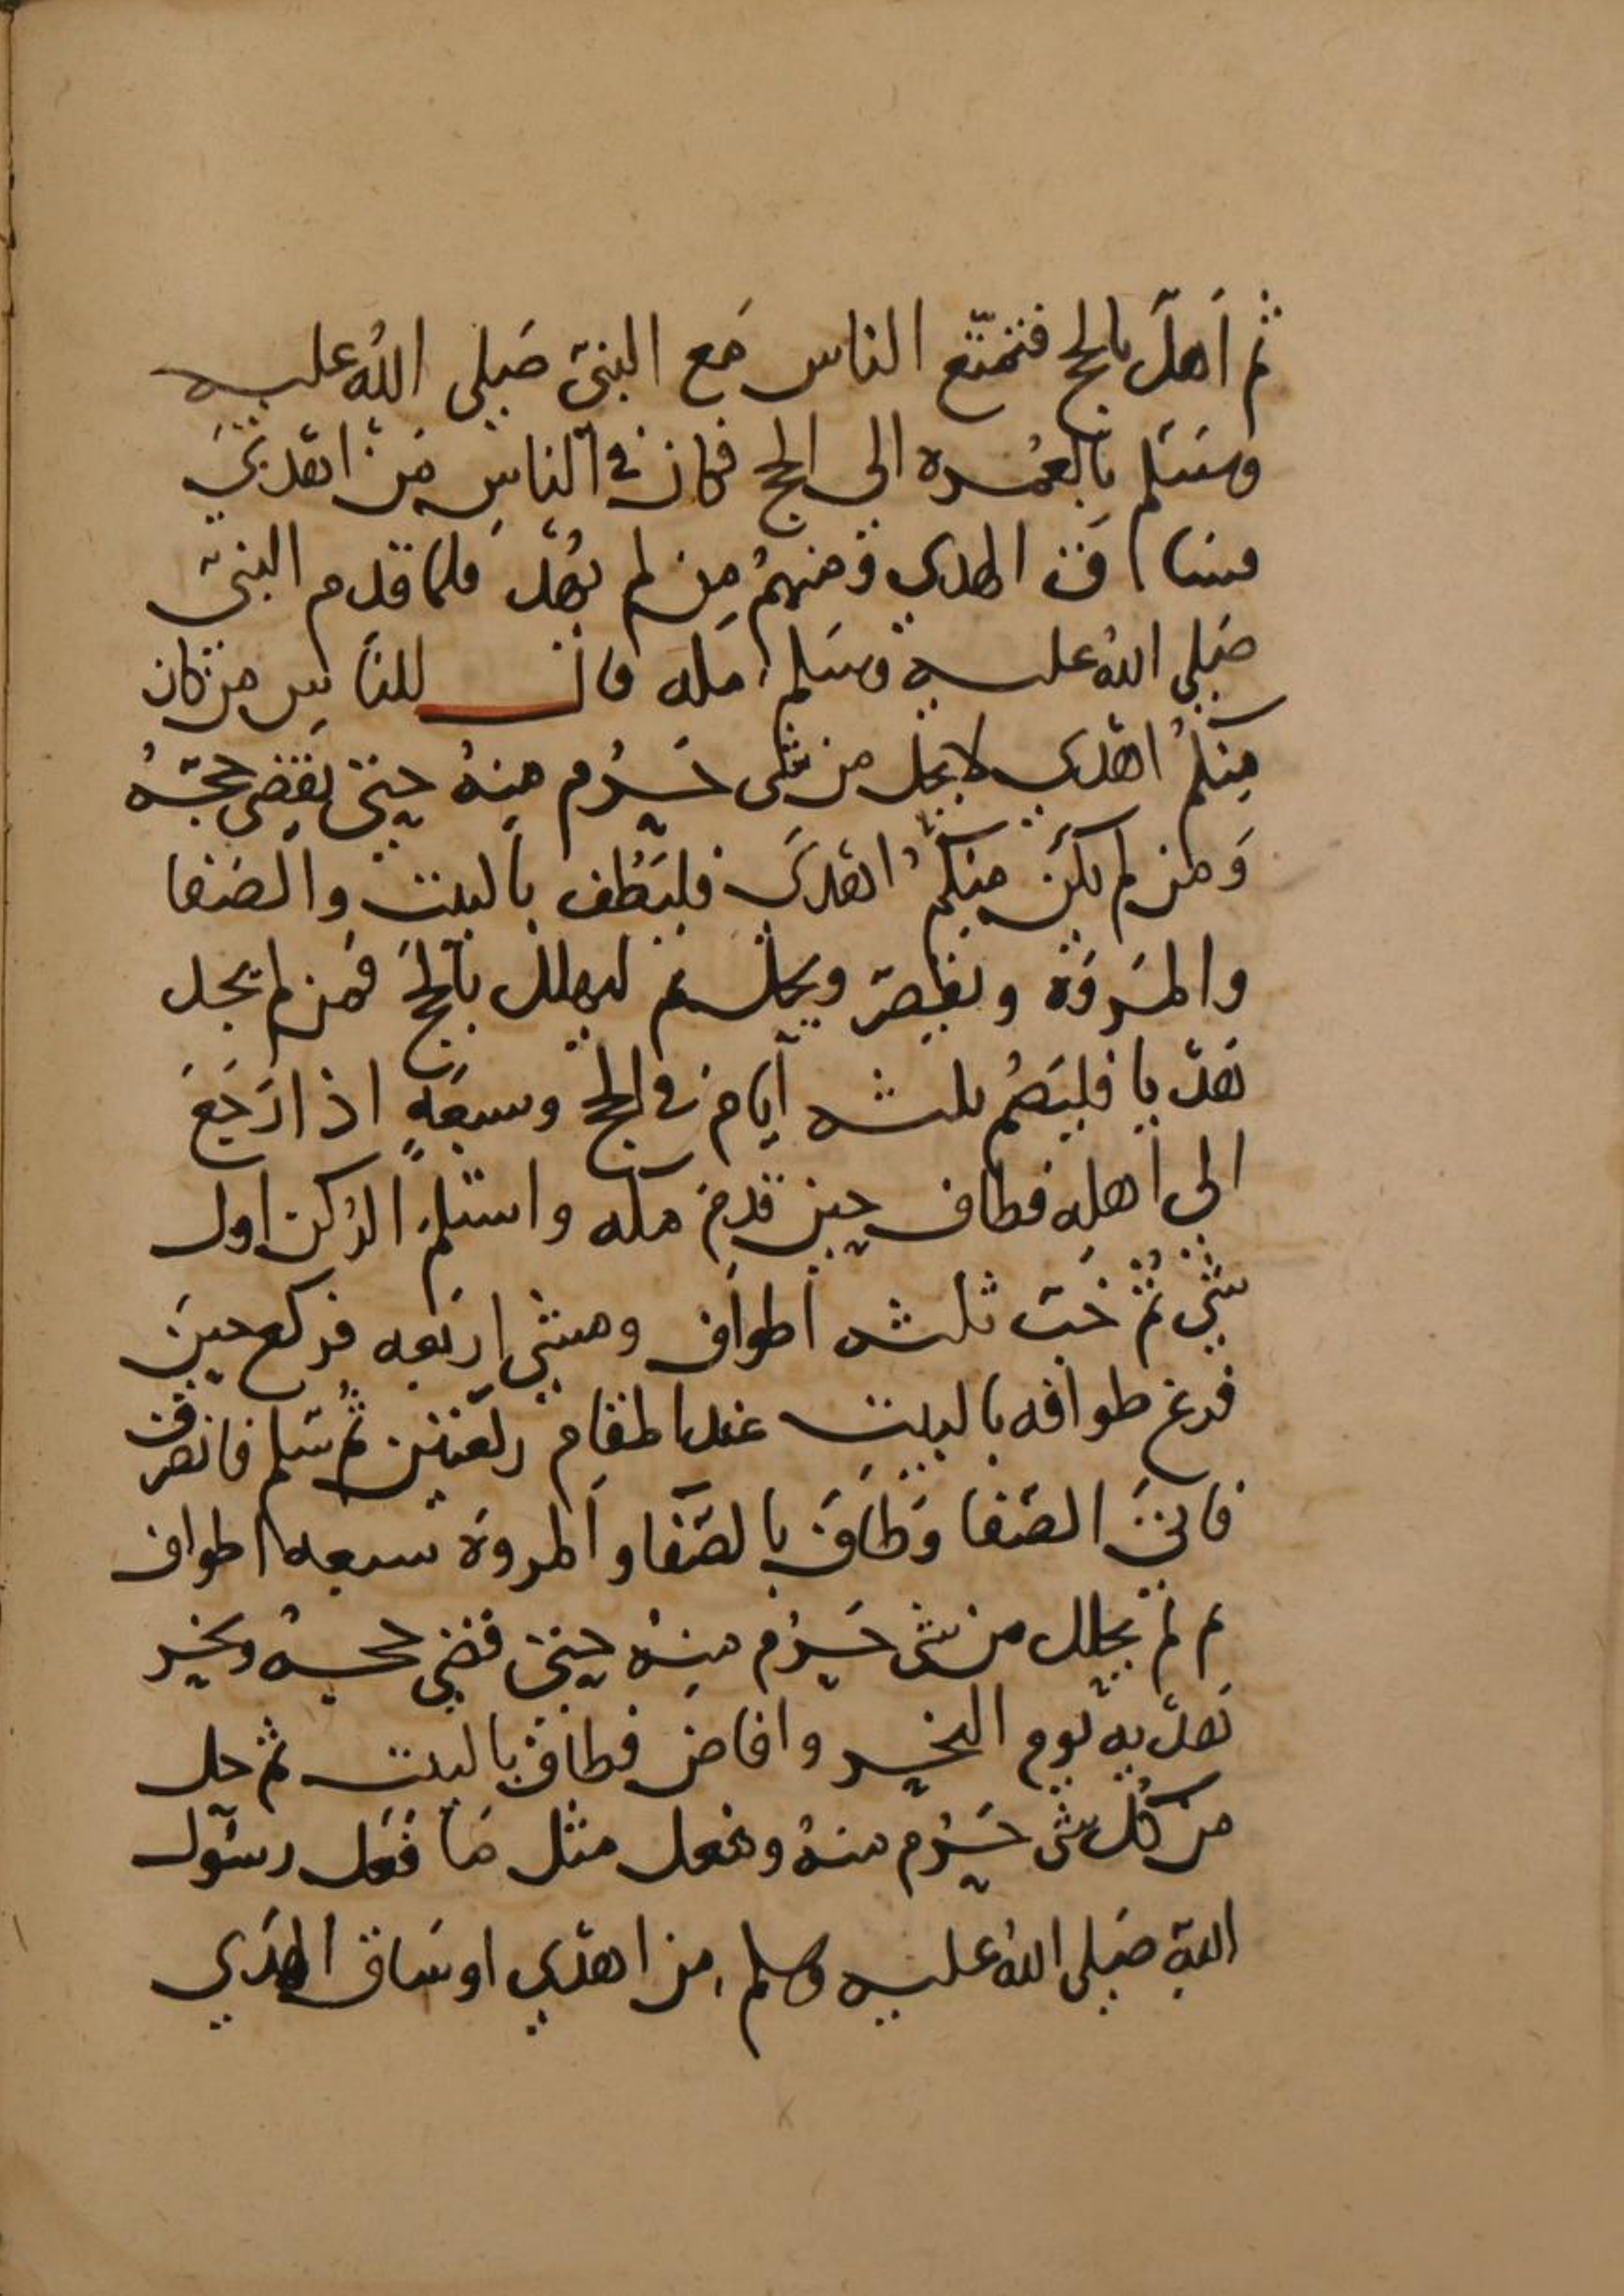 ثم اَهلَّ بالحج فتمتّع الناس مَع النبيّ صَلى اللهُ عليه
وسَلم بالعُمره الى الحج فكان في الناسِ مَنْ اَهْدىَ
فساق الهدي وَمنهمُ مِن لم يُهْد فلما قدم النبيّ
صَلى اللهُ عليه وسَلم مكه قال للنَاسِ من كان
مِنكمُ اهْدى لا يحل من شى حَرُم مِنهُ حتى يَقضى حجّهُ
وَمن لم يكُن مِنكمُ اهْدىَ فليَطُف بالبيت والصَفا
والمَروَة ويقصّر ويحلل ثم ليهلل بالحجَ فمَن لم يجد
هَدْيا فليَصُم ثلثه اَيام في الحج وسبعَةٍ اذا رَجَعَ
الى اَهلِه فطاف حين قدِمَ مكه واستلم الرُكن اول
شيٍ ثُمَّ خَبّ ثلثه اَطوَاف ومشى اربَعه فركع حينَ
فرغ طوافه بالبيت عند المقام ركعتين ثُم سَلم فانصرف
فاتىَ الصَفا وَطَافَ بالصّفا والمروَة سبعه اطواف
ثم لم يحلل من شى حَرُم مِنهُ حتىَ قضى حجهُ ونحر
هَدْيه يَوم النحر وافاضَ فطاف بالبيت ثم حل
من كُل شى حَرُم منهُ وفعل مثل مَا فَعَل رسُول
اللهِ صَلى اللهُ عليه وسلم من اهدْى او سَاق الهدَي